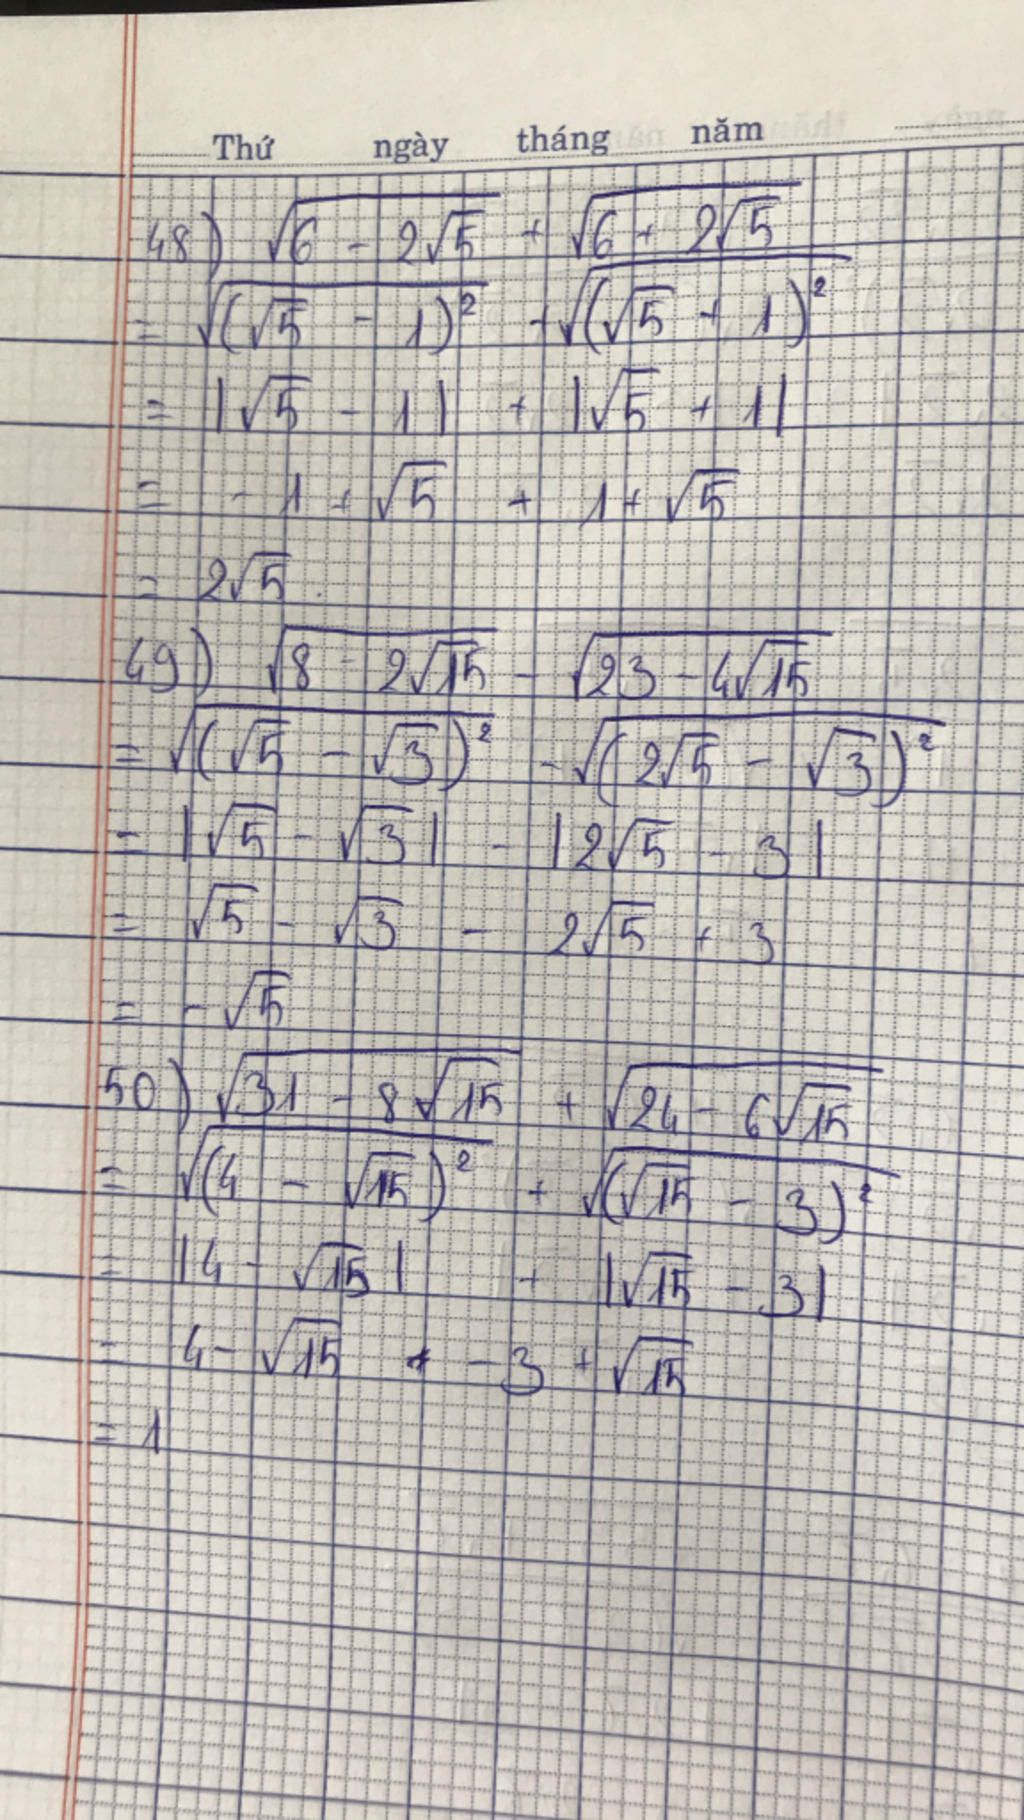 Thứ ngày tháng năm
48) √(6 - 2√5) + √(6 + 2√5)
= √((√5 - 1)²) + √((√5 + 1)²)
= |√5 - 1| + |√5 + 1|
= - 1 + √5 + 1 + √5
= 2√5.
49) √(8 - 2√15) - √(23 - 4√15)
= √((√5 - √3)²) - √((2√5 - √3)²)
= |√5 - √3| - |2√5 - 3|
= √5 - √3 - 2√5 + 3
= - √5
50) √(31 - 8√15) + √(24 - 6√15)
= √((4 - √15)²) + √((√15 - 3)²)
= |4 - √15| + |√15 - 3|
= 4 - √15 + - 3 + √15
= 1